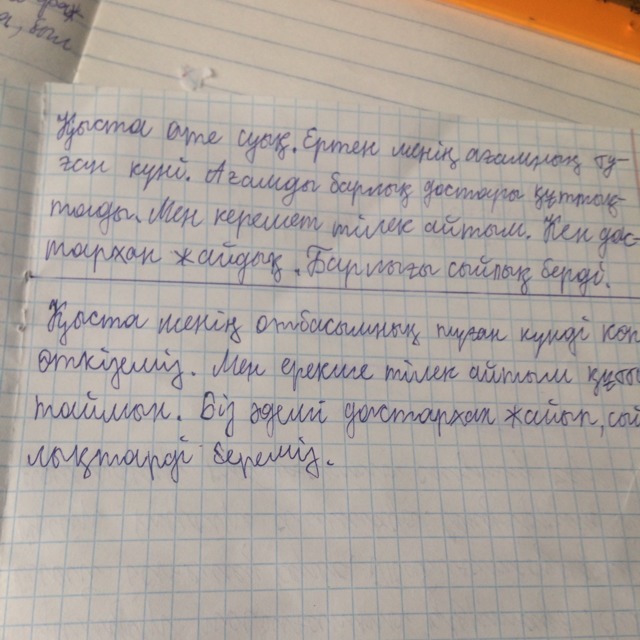 Қыста өте суық. Ертен менің ағамның ту-
ған күні. Ағамды барлық достары құттық-
тады. Мен керемет тілек айтым. Кен дас-
тархан жайдық. Барлығы сыйлық берді.
Қыста менің отбасымның туған күнді көп
өткіземіз. Мен ерекше тілек айтым құты
таймын. Біз әдемі дастархан жайып, сый
лықтарді береміз.